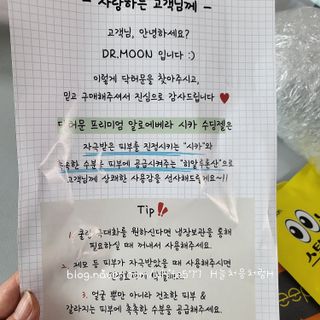 - 사랑하는 고객님께 -
고객님, 안녕하세요?
DR.MOON 입니다 :)
이렇게 닥터문을 찾아주시고,
믿고 구매해주셔서 진심으로 감사드립니다 ♥
닥터문 프리미엄 알로에베라 시카 수딩젤은
자극받은 피부를 진정시키는 "시카"와
촉촉한 수분을 피부에 공급시켜주는 "히알루론산"으로
고객님께 상쾌한 사용감을 선사해드려요~!!
Tip!!
1. 쿨링 극대화를 원하신다면 냉장보관을 통해
필요하실 때 꺼내서 사용해주세요.
2. 제모 등 피부가 자극받았을 때 사용해주세요.
blog.na
577
3. 얼굴 뿐만 아니라 건조한 피부 &
갈라지는 피부에 촉촉한 수분을 공급해주세요.